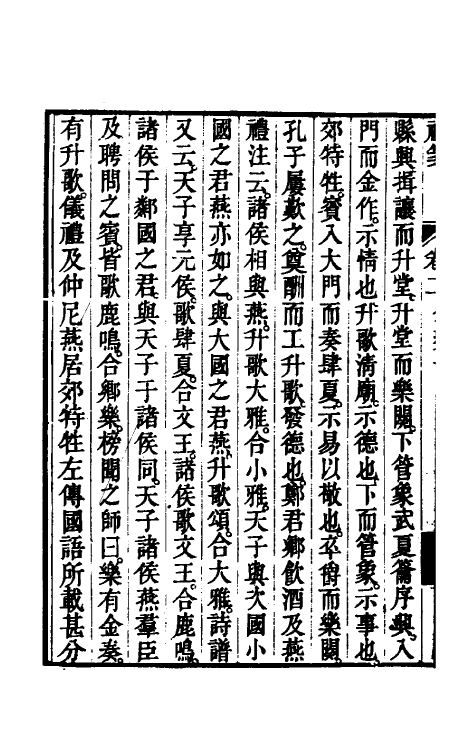 縣興揖讓而升堂。升堂而樂闋。下管象武夏籥序興。入
門而金作。示情也。升歌清廟。示德也。下而管象。示事也。
郊特牲。賓入大門而奏肆夏。示易以敬也。卒爵而樂闋。
孔子屢歎之。奠酬而工升歌。發德也。鄭君鄉飲酒及燕
禮注云。諸侯相與燕。升歌大雅。合小雅。天子與大國小
國之君燕亦如之。與大國之君燕。升歌頌。合大雅。詩譜
又云。天子享元侯。歌肆夏。合文王。諸侯歌文王。合鹿鳴。
諸侯于鄰國之君。與天子于諸侯同。天子諸侯燕羣臣
及聘問之賓。皆歌鹿鳴。合鄉樂。榜聞之師曰。樂有金奏。
有升歌。儀禮及仲尼燕居郊特牲左傳國語所載甚分